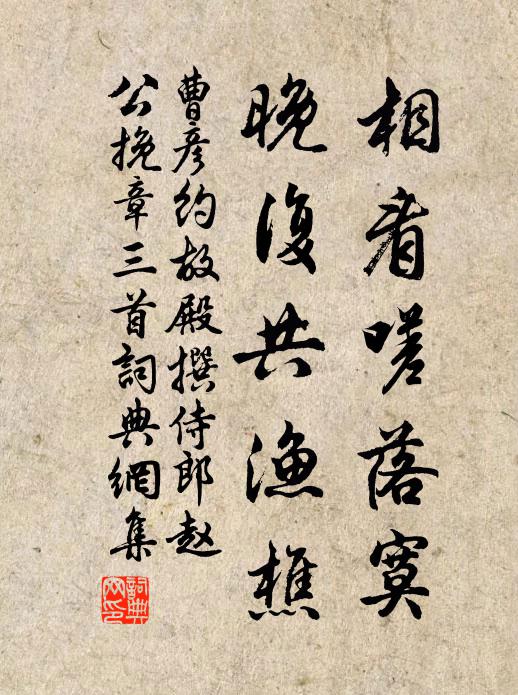 相看嗟落寞
晚復共漁樵
曹彦約故殿撰侍郎赵
公挽章三首詞典網集
詞典
网印